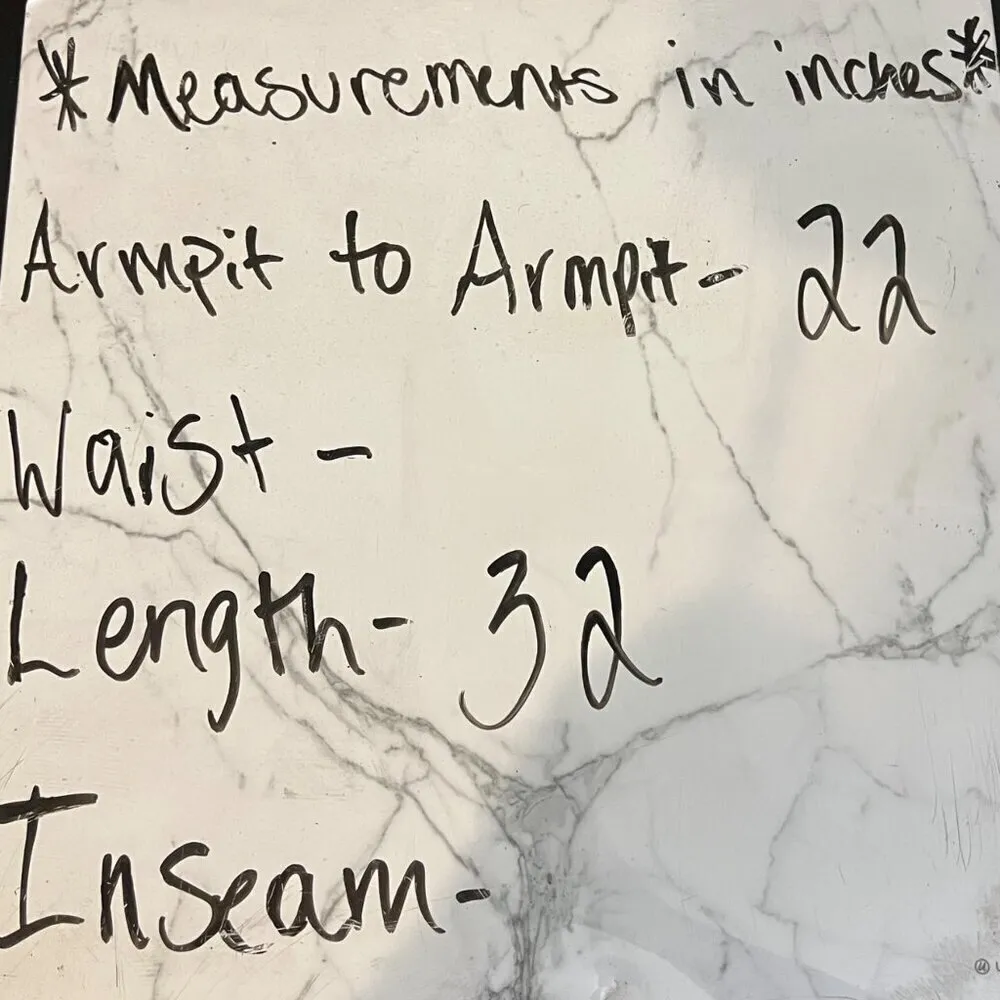 *Measurements in inches*
Armpit to Armpit- 22
Waist -
Length- 32
Inseam-